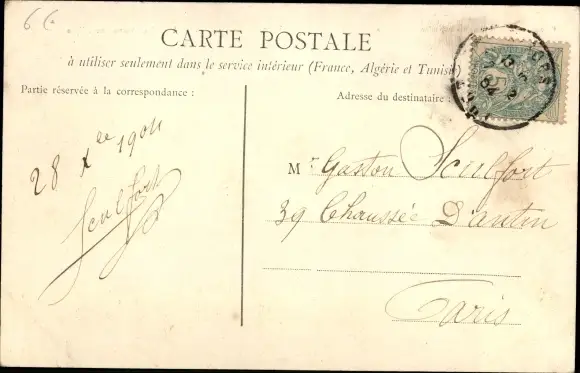 66
CARTE POSTALE
à utiliser seulement dans le service intérieur (France, Algérie et Tunisie)
Partie réservée à la correspondance :
Adresse du destinataire :
28 Xbre 1904
Sculfort
Mr Gaston Sculfort
39 Chaussée D'antin
Paris